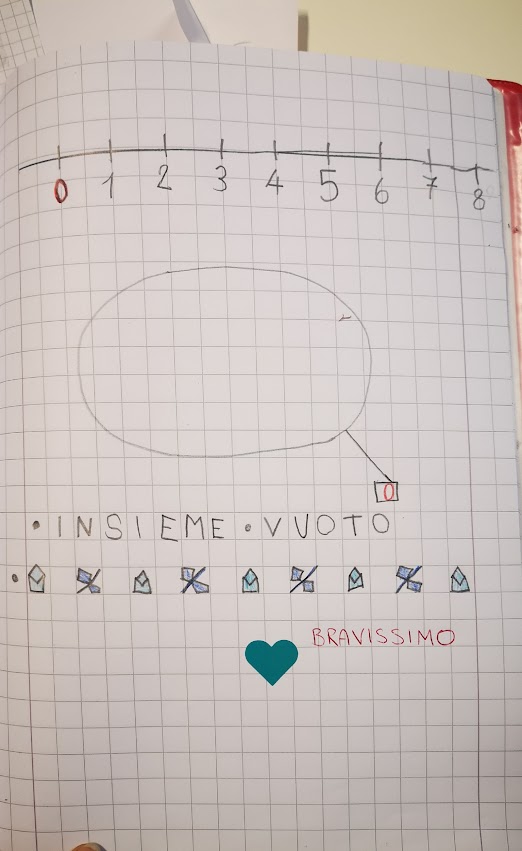 0 1 2 3 4 5 6 7 8
0
• INSIEME • VUOTO
BRAVISSIMO